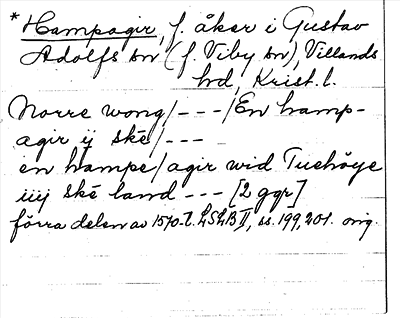 * Hampagir, f. åker i Gustav
Adolfs sn (f. Viby sn), Villands
hd, Krist. l.
Norre wong/---/En hamp-
agir ij ské/---
en hampe/agir wid Tuehöye
iiij ské land --- [2 ggr]
förra delen av 1570-t. LSLB II, ss. 199, 201. orig.